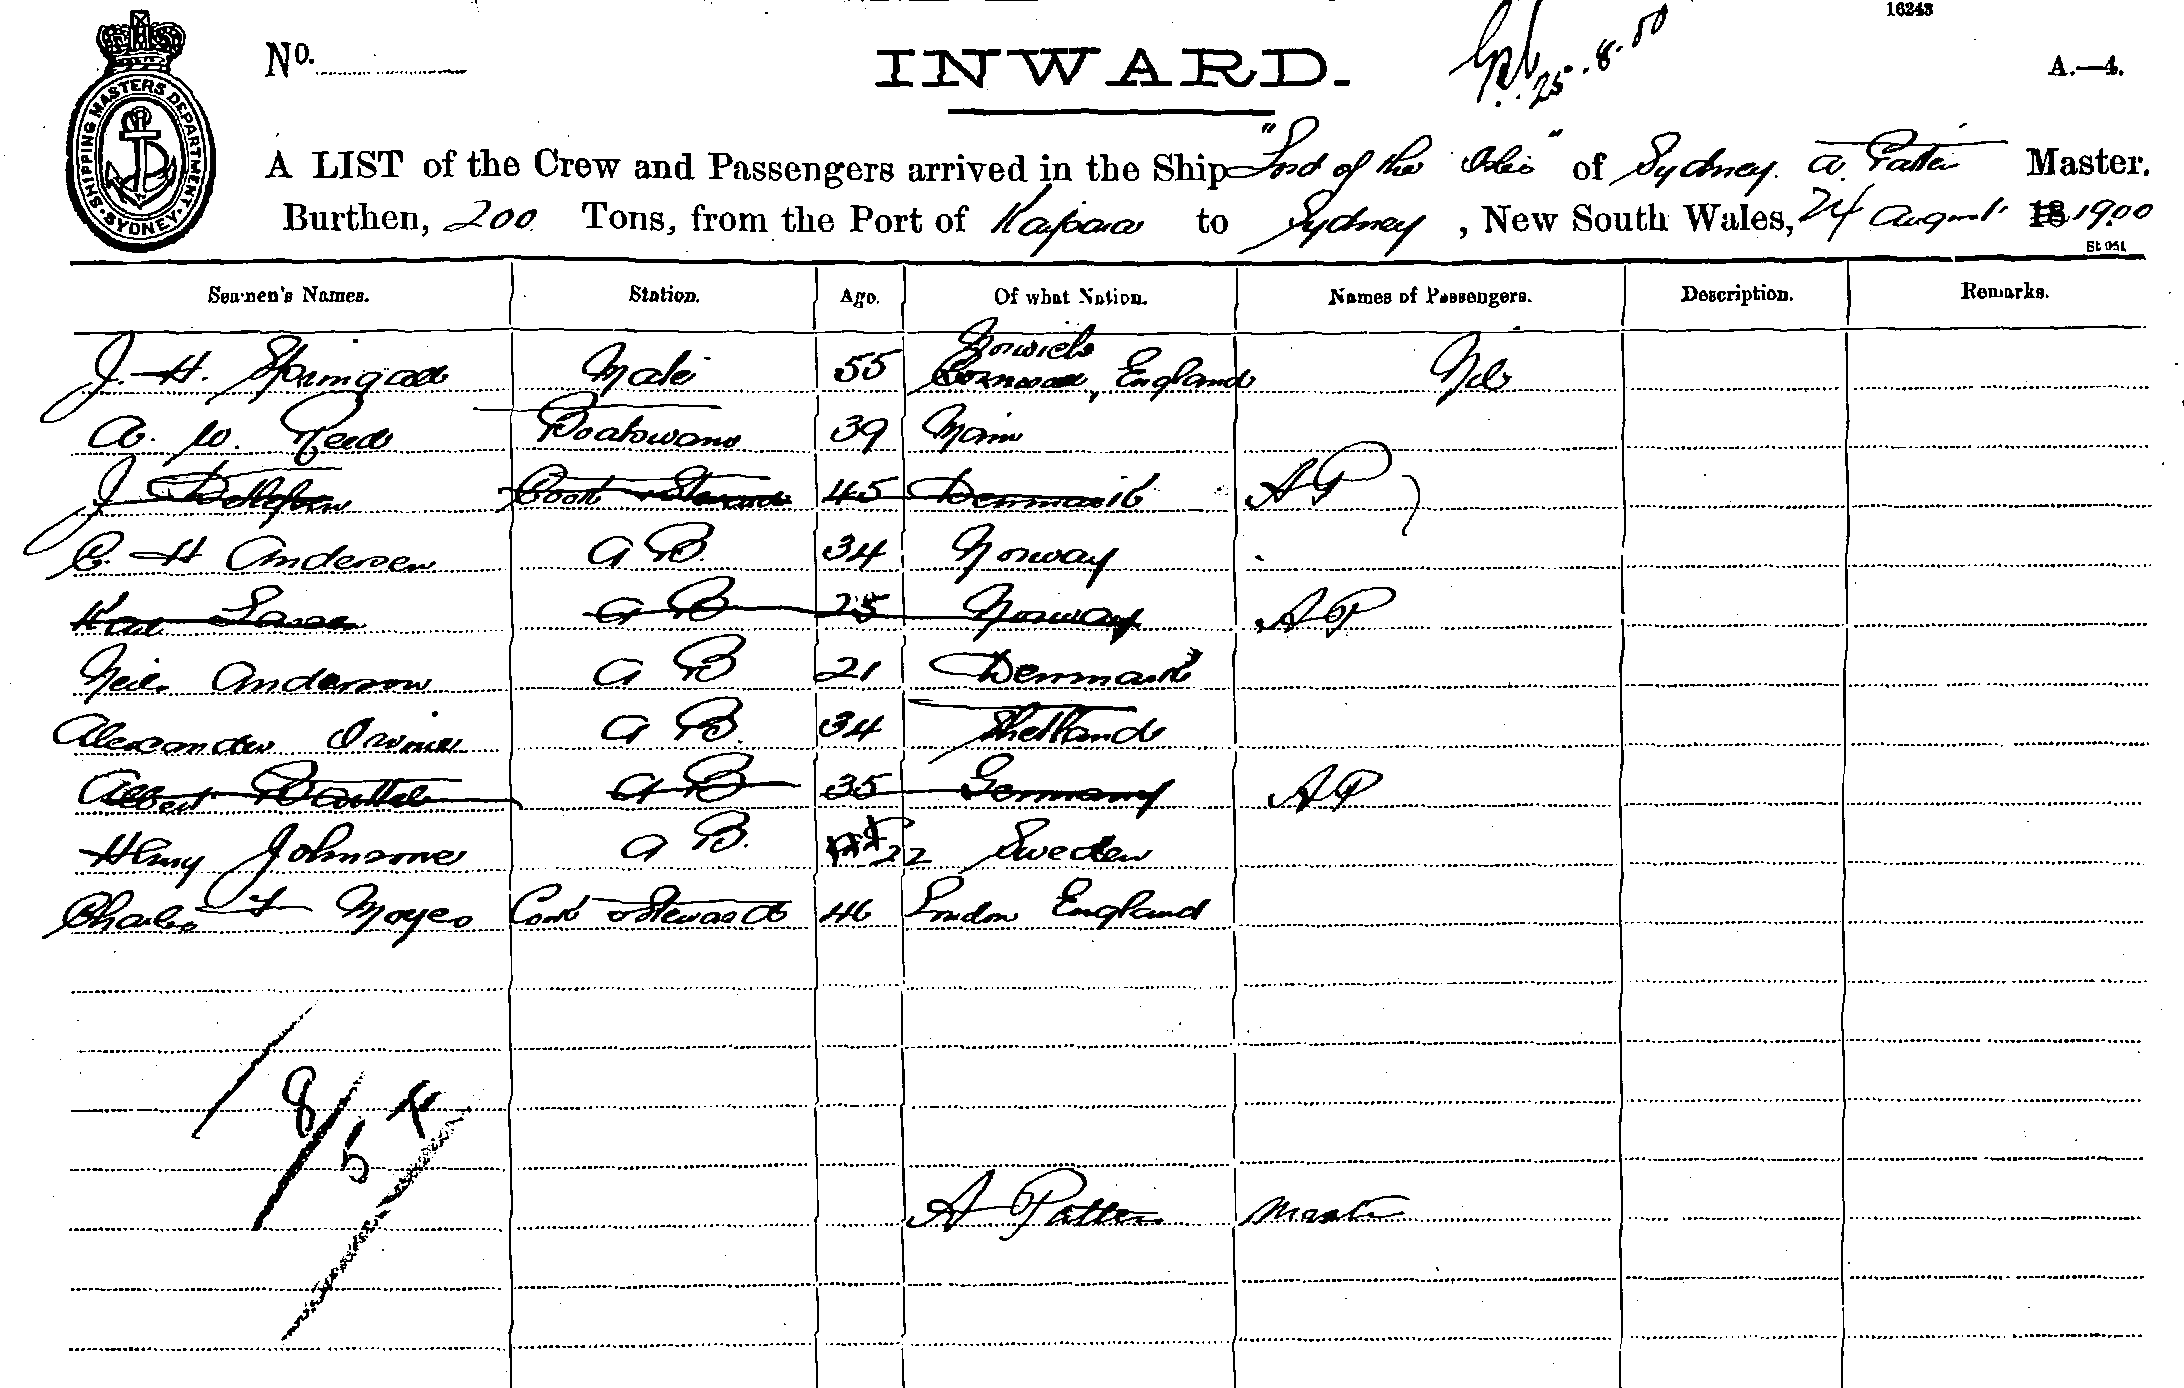 16243
No.
INWARD.
25.8.00
A.—4.
SHIPPING MASTERS DEPARTMENT. SYDNEY.
A LIST of the Crew and Passengers arrived in the Ship "Lord of the Isles" of Sydney. A. Patten Master.
Burthen, 200 Tons, from the Port of Kaipara to Sydney, New South Wales, 24 August 18 1900
Seamen's Names. Station. Age. Of what Nation. Names of Passengers. Description. Remarks.
Norwich
J. H. Mate 55 England Nil
A. W. Reed Boatswain 39
J Cook & Steward 45 Denmark AP
C. H Andersen A B. 34 Norway
Karl A B 25 Norway AP
Neils Anderson A B 21 Denmark
Alexander A B. 34 Shetland
Albert A B 35 Germany AP
Henry Johnsone A B. 22 Sweden
Charles Moyes Cook & Steward 46 London England
8/5
A Patten Master